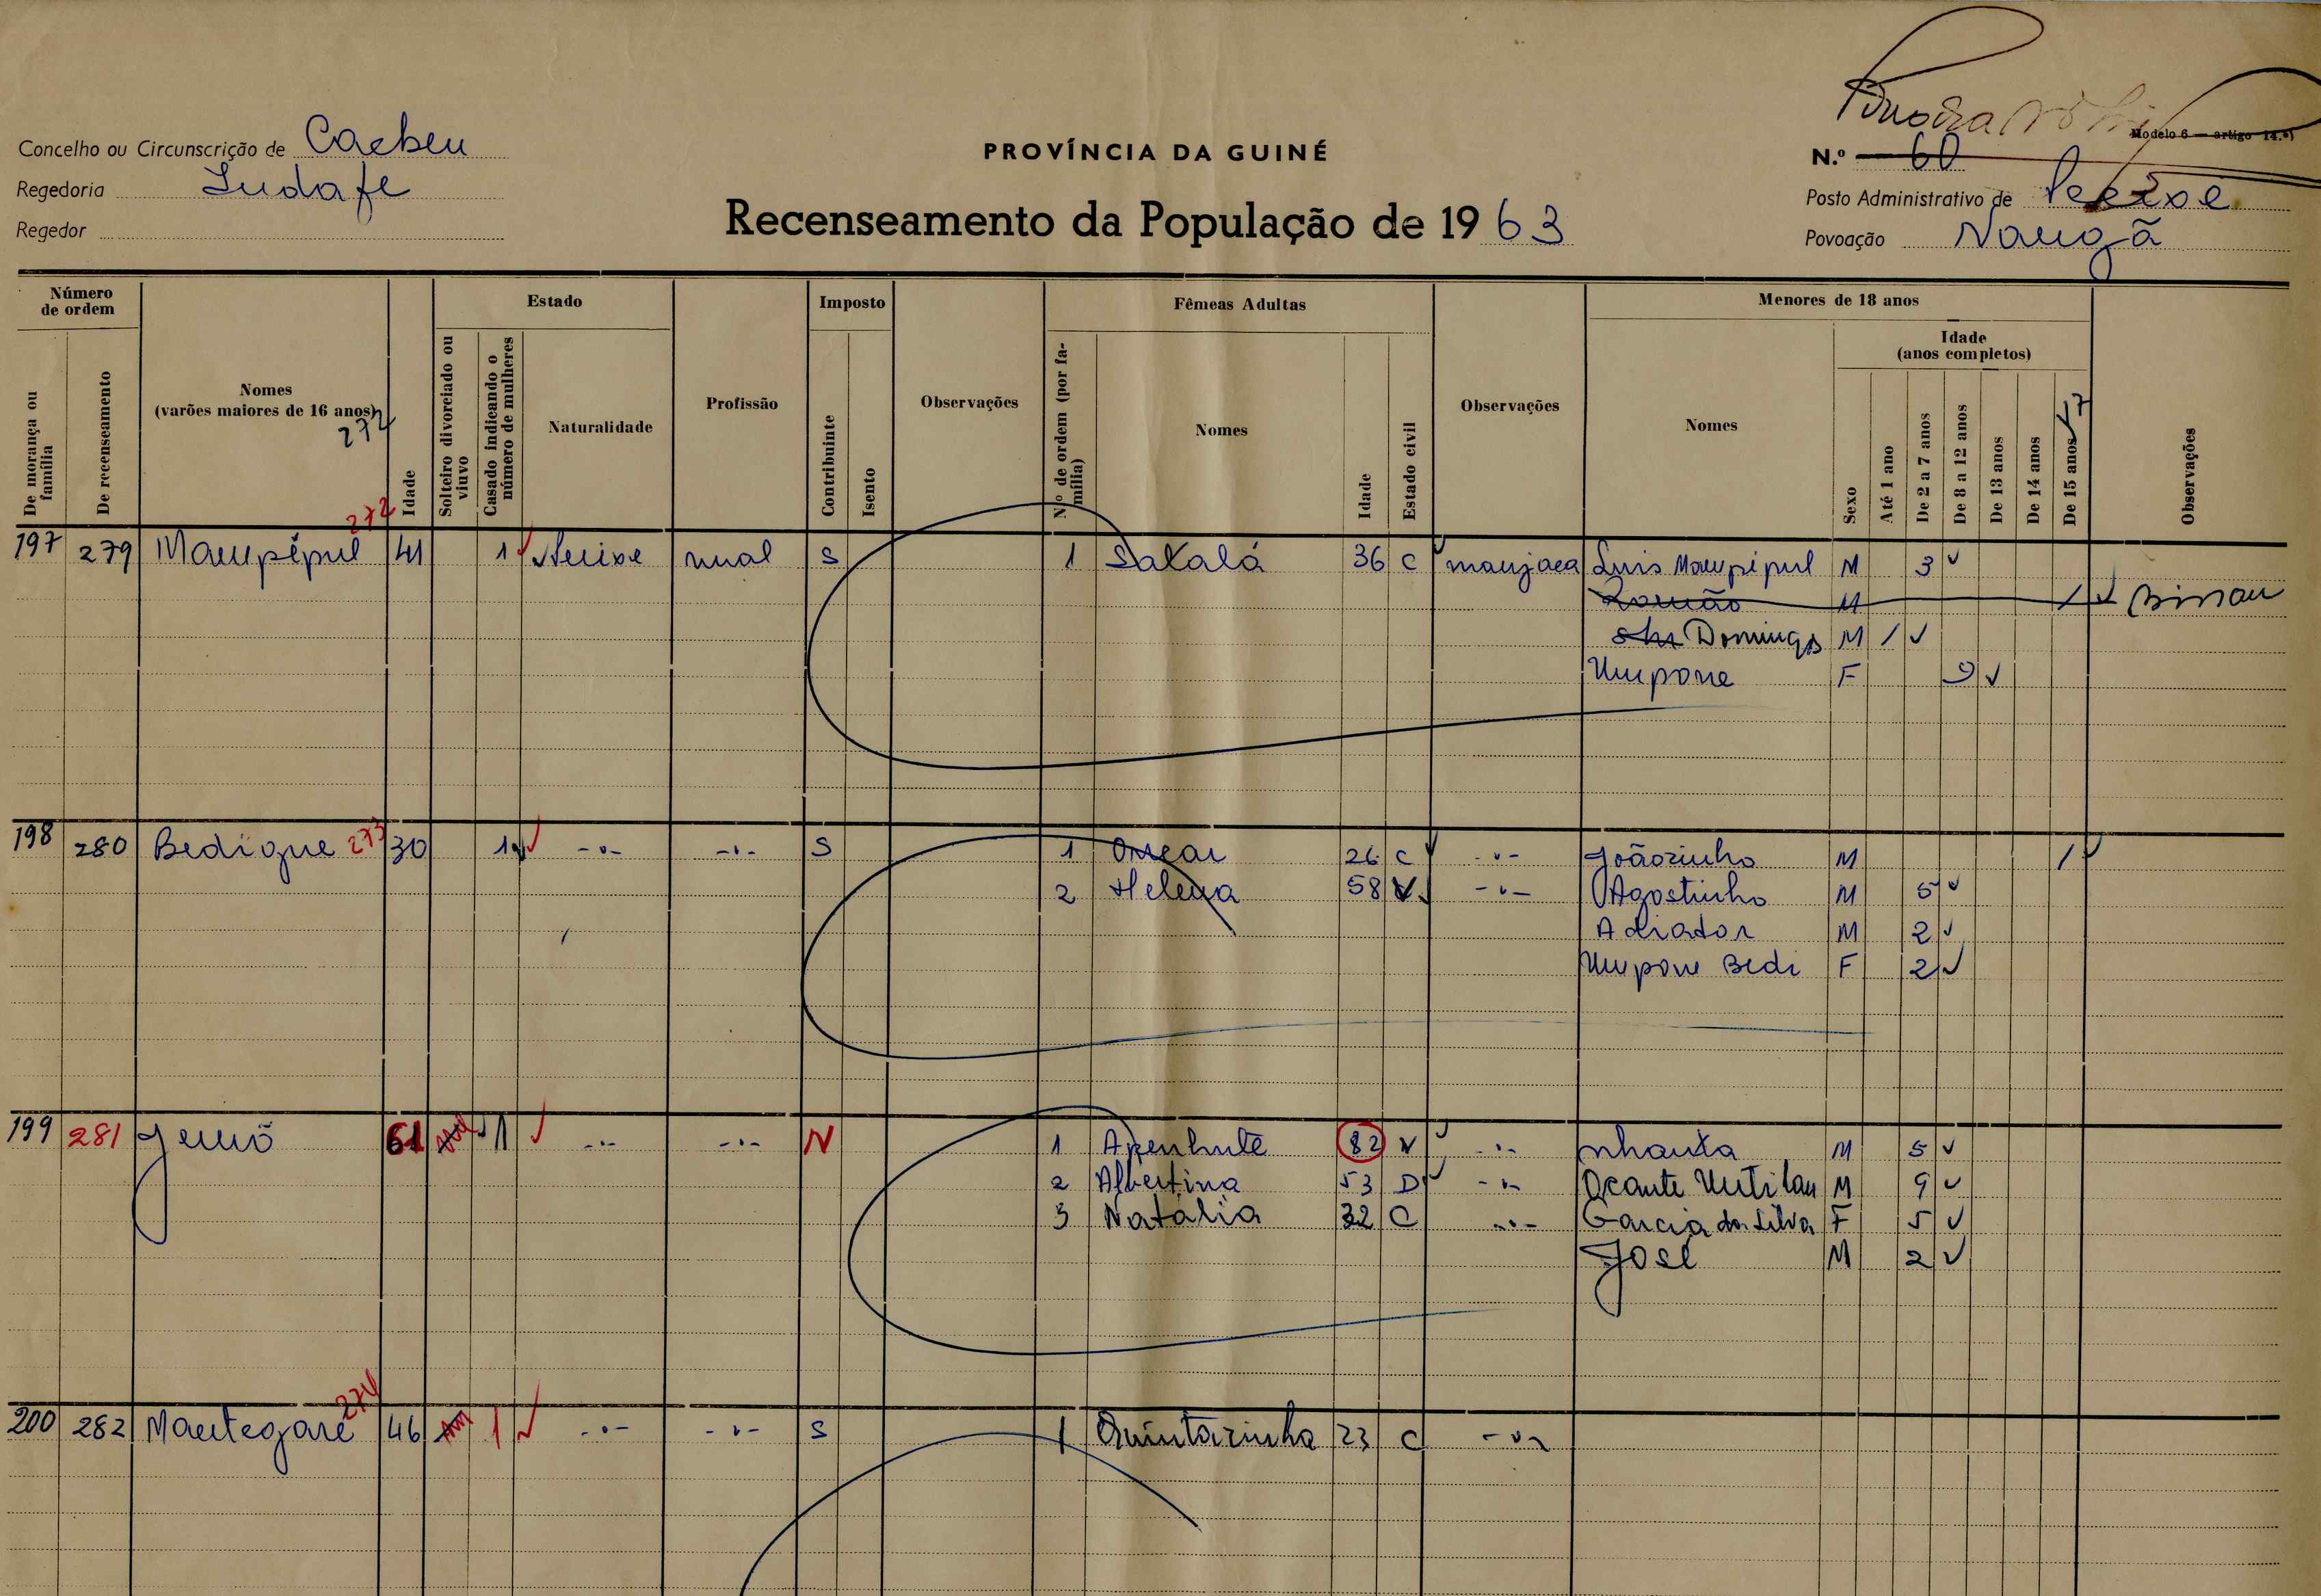 Modelo 6 — artigo 14.º)
Concelho ou Circunscrição de Cacheu
PROVÍNCIA DA GUINÉ
N.º 60
Regedoria
Posto Administrativo de
Recenseamento da População de 1963
Regedor
Povoação Nangã
Número de ordem
Estado
Imposto
Fêmeas Adultas
Menores de 18 anos
Idade (anos completos)
De morança ou família
De recenseamento
Nomes (varões maiores de 16 anos)
274
272
Idade
Solteiro divorciado ou viuvo
Casado indicando o número de mulheres
Naturalidade
Profissão
Contribuinte
Isento
Observações
Nº de ordem (por família)
Nomes
Idade
Estado civil
Observações
Nomes
Sexo
Até 1 ano
De 2 a 7 anos
De 8 a 12 anos
De 13 anos
De 14 anos
De 15 anos 17
Observações
197 279 Maupépul 41 1 rual S 1 Sakalá 36 C manjaca Luis Maupépul M 3
Romão M / Bissau
Domingos M /
Umpone F 9
198 280 Bedigue 273 30 1 -"- -"- S 1 26 C -"- Joãozinho M /
2 Helena 58 V -"- Agostinho M 5
Adiador M 2
Umpone Bedi F 2
199 281 61 1 -"- -"- N 1 Apenhute 82 V -"- Nhanka M 5
2 Albertina 53 D -"- Ocante M 9
3 Natália 32 C -"- Garcia da Silva F 5
José M 2
200 282 Mantegare 274 46 1 -"- -"- S 1 Quintazinha 23 C -"-